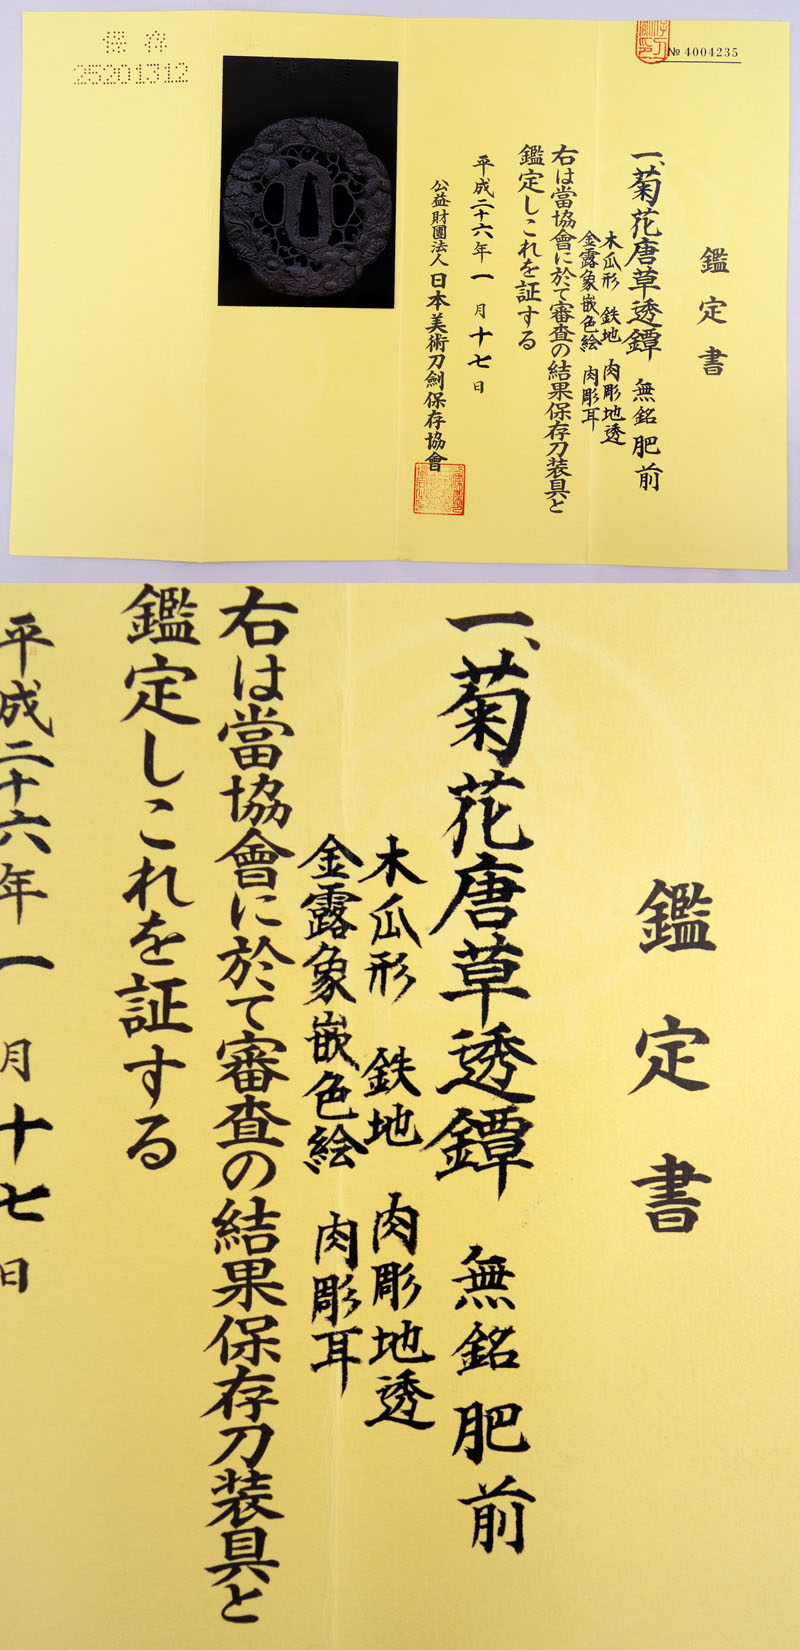 保存
25201312
№ 4004235
鑑定書
一、菊花唐草透鐔 無銘 肥前
木瓜形 鉄地 肉彫地透
金露象嵌色絵 肉彫耳
右は當協會に於て審査の結果保存刀装具と
鑑定しこれを証する
平成二十六年一月十七日
公益財團法人日本美術刀劍保存協會
鑑定書
一、菊花唐草透鐔 無銘 肥前
木瓜形 鉄地 肉彫地透
金露象嵌色絵 肉彫耳
右は當協會に於て審査の結果保存刀装具と
鑑定しこれを証する
平成二十六年一月十七日